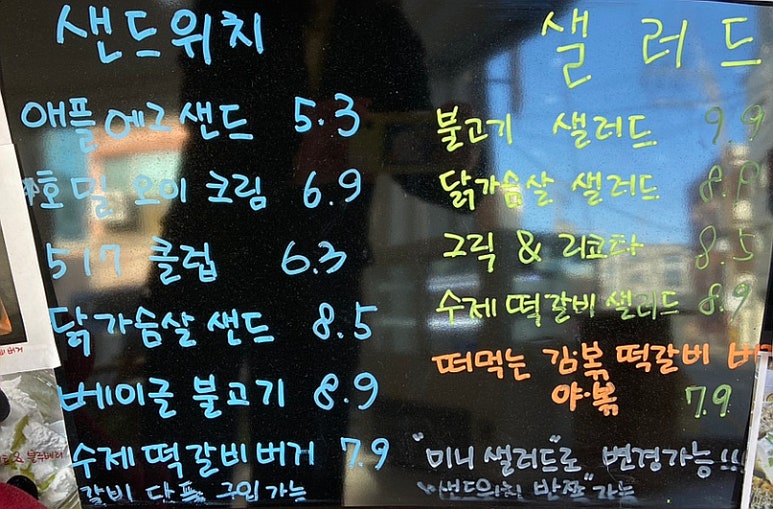 샌드위치
애플에그샌드 5.3
호밀 오이 크림 6.9
517 클럽 6.3
닭가슴살 샌드 8.5
베이글 불고기 8.9
수제떡갈비버거 7.9
갈비 단품 구입 가능
샐러드
불고기 샐러드 9.9
닭가슴살 샐러드 8.9
그릭 & 리코타 8.5
수제떡갈비 샐러드 8.9
떠먹는 김볶 떡갈비
야·볶 7.9
"미니샐러드"로 변경가능!!!
"샌드위치 반쪽" 가능